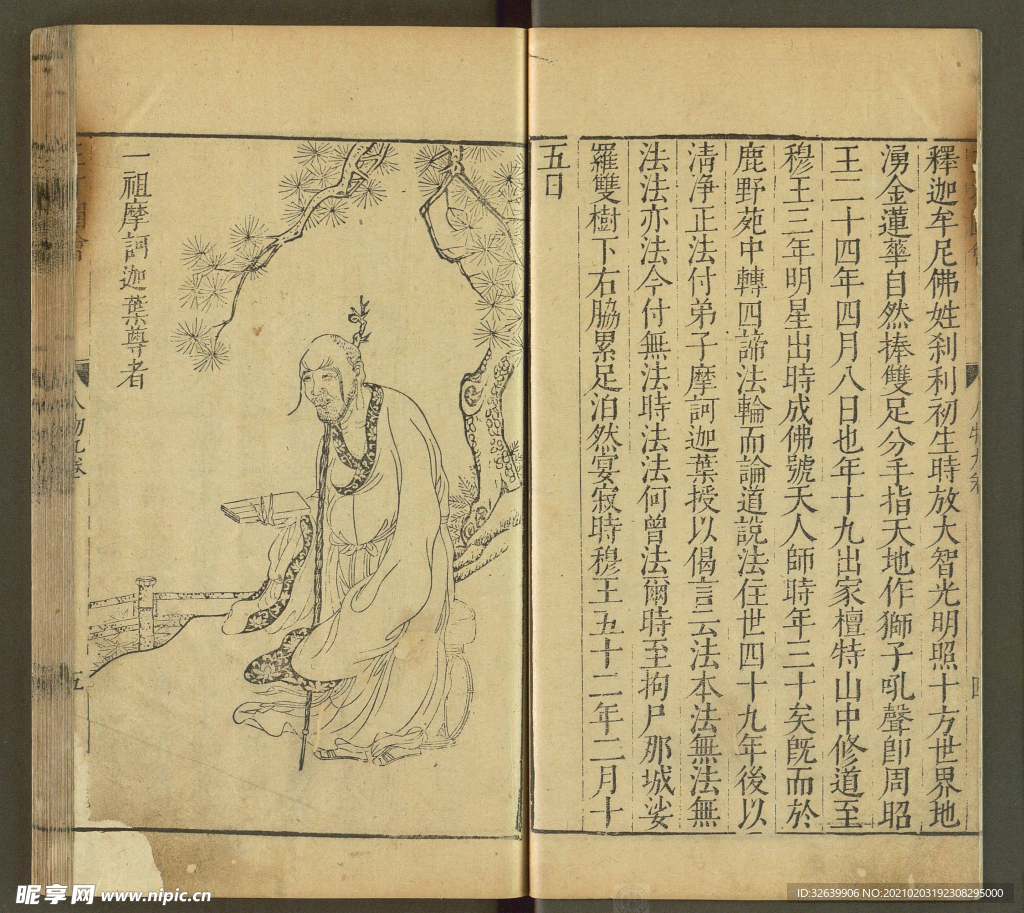 釋迦牟尼佛姓刹利初生時放大智光明照十方世界地
湧金蓮華自然捧雙足分手指天地作獅子吼聲卽周昭
王二十四年四月八日也年十九出家檀特山中修道至
穆王三年明星出時成佛號天人師時年三十矣旣而於
鹿野苑中轉四諦法輪而論道說法住世四十九年後以
淸淨正法付弟子摩訶迦葉授以偈言云法本法無法無
法法亦法今付無法時法法何曾法爾時至拘尸那城娑
羅雙樹下右脇累足泊然宴寂時穆王五十二年二月十
五日
一祖摩訶迦葉尊者
人物九卷
五
昵享网 www.nipic.cn
ID:32639906 NO:20210203192308295000